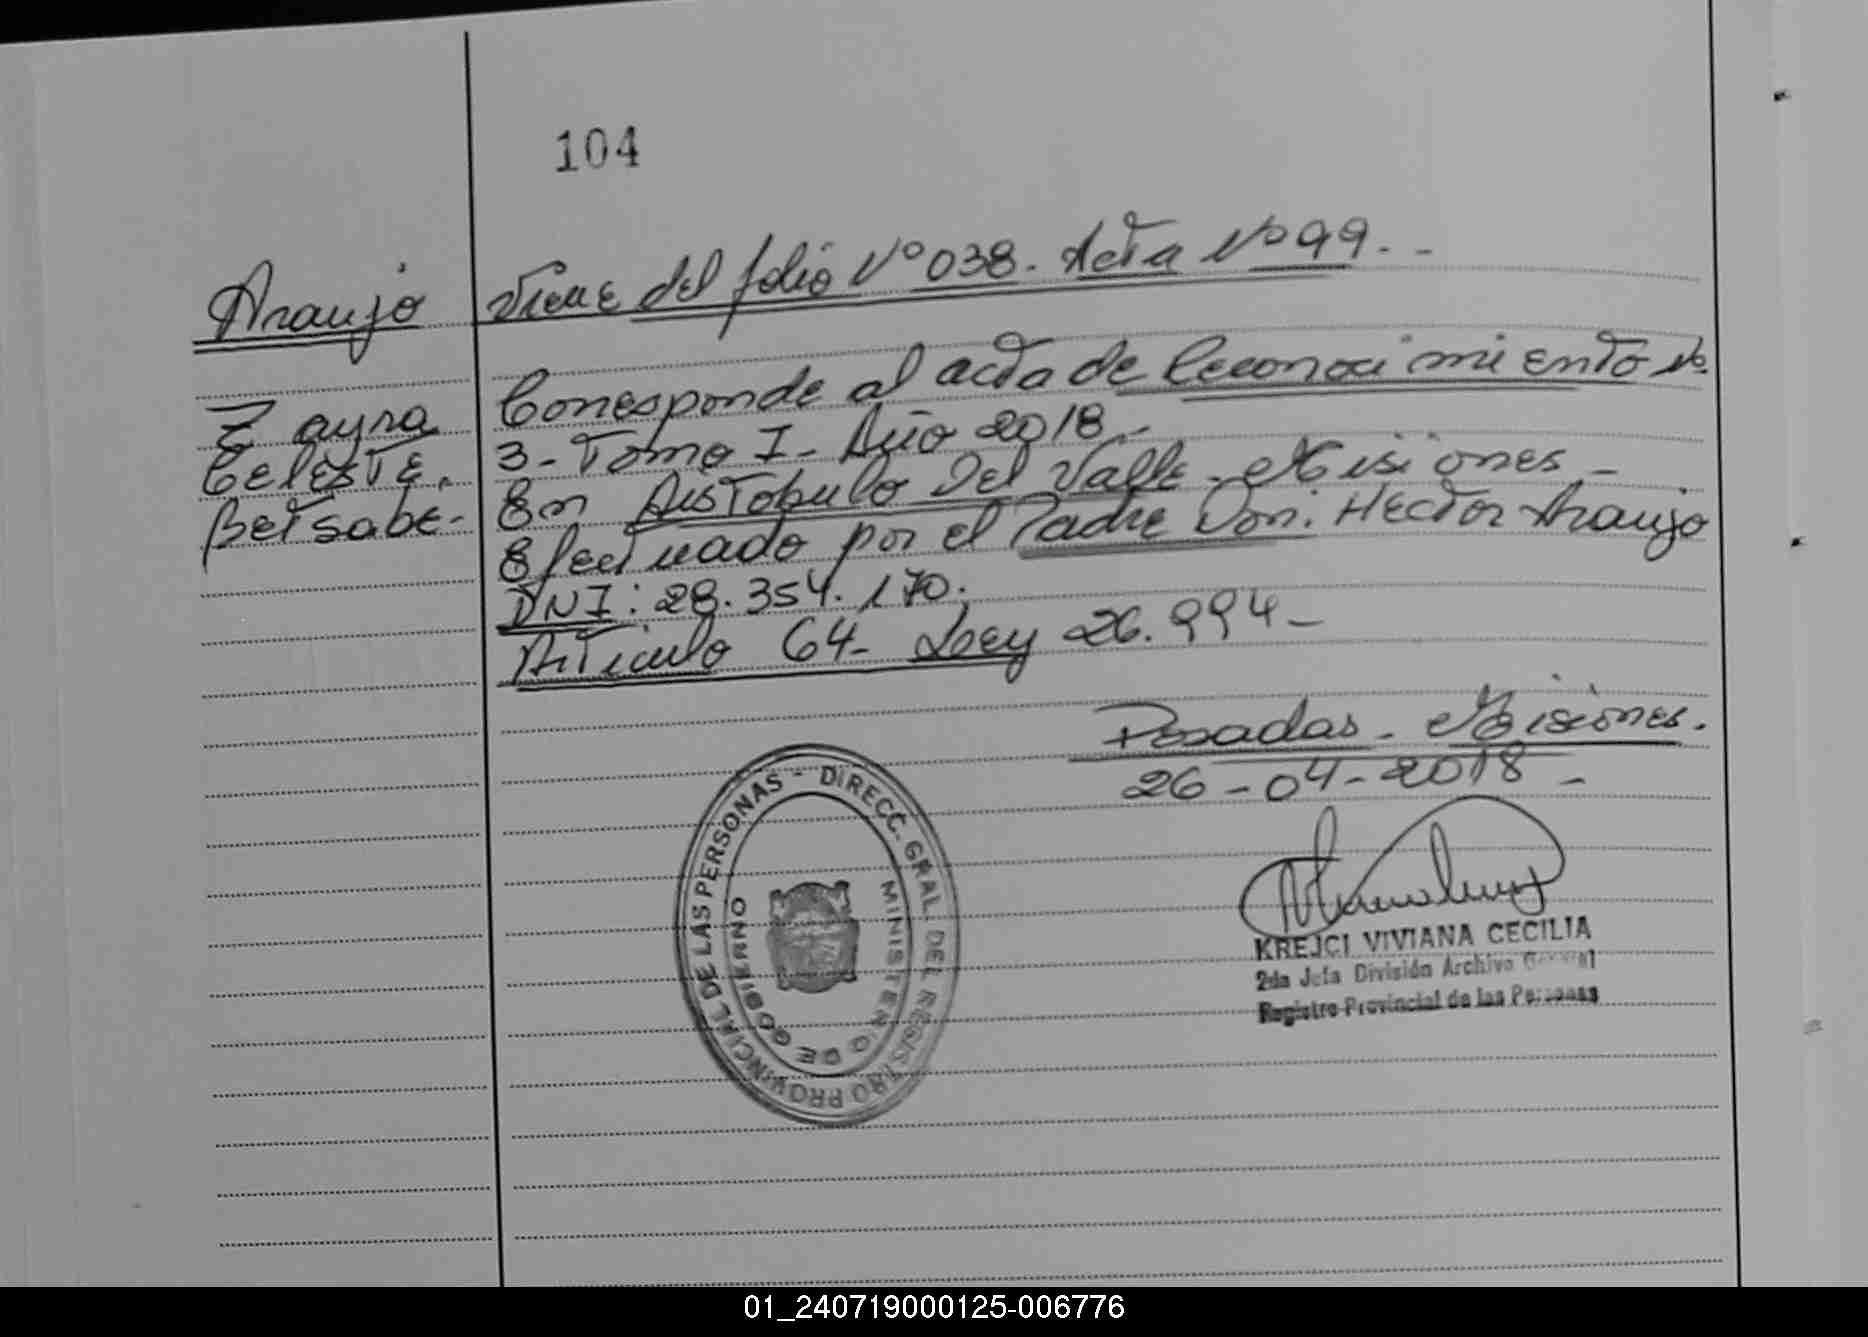 104
Araujo
Viene del folio Nº 038. Acta Nº 99.-
Zayra
Celeste.
Betsabe.-
Corresponde al acta de Reconocimiento Nº
3- Tomo I- Año 2018-
En Aristobulo Del Valle- Misiones-
Efectuado por el Padre Don: Hector Araujo
DNI: 28.354.170.
Articulo 64- Ley 26.994-
Posadas- Misiones.
26-04-2018-
DIRECC. GRAL. DEL REGISTRO PROVINCIAL DE LAS PERSONAS -
MINISTERIO DE GOBIERNO
KREJCI VIVIANA CECILIA
2da Jefa División Archivo General
Registro Provincial de las Personas
01_240719000125-006776